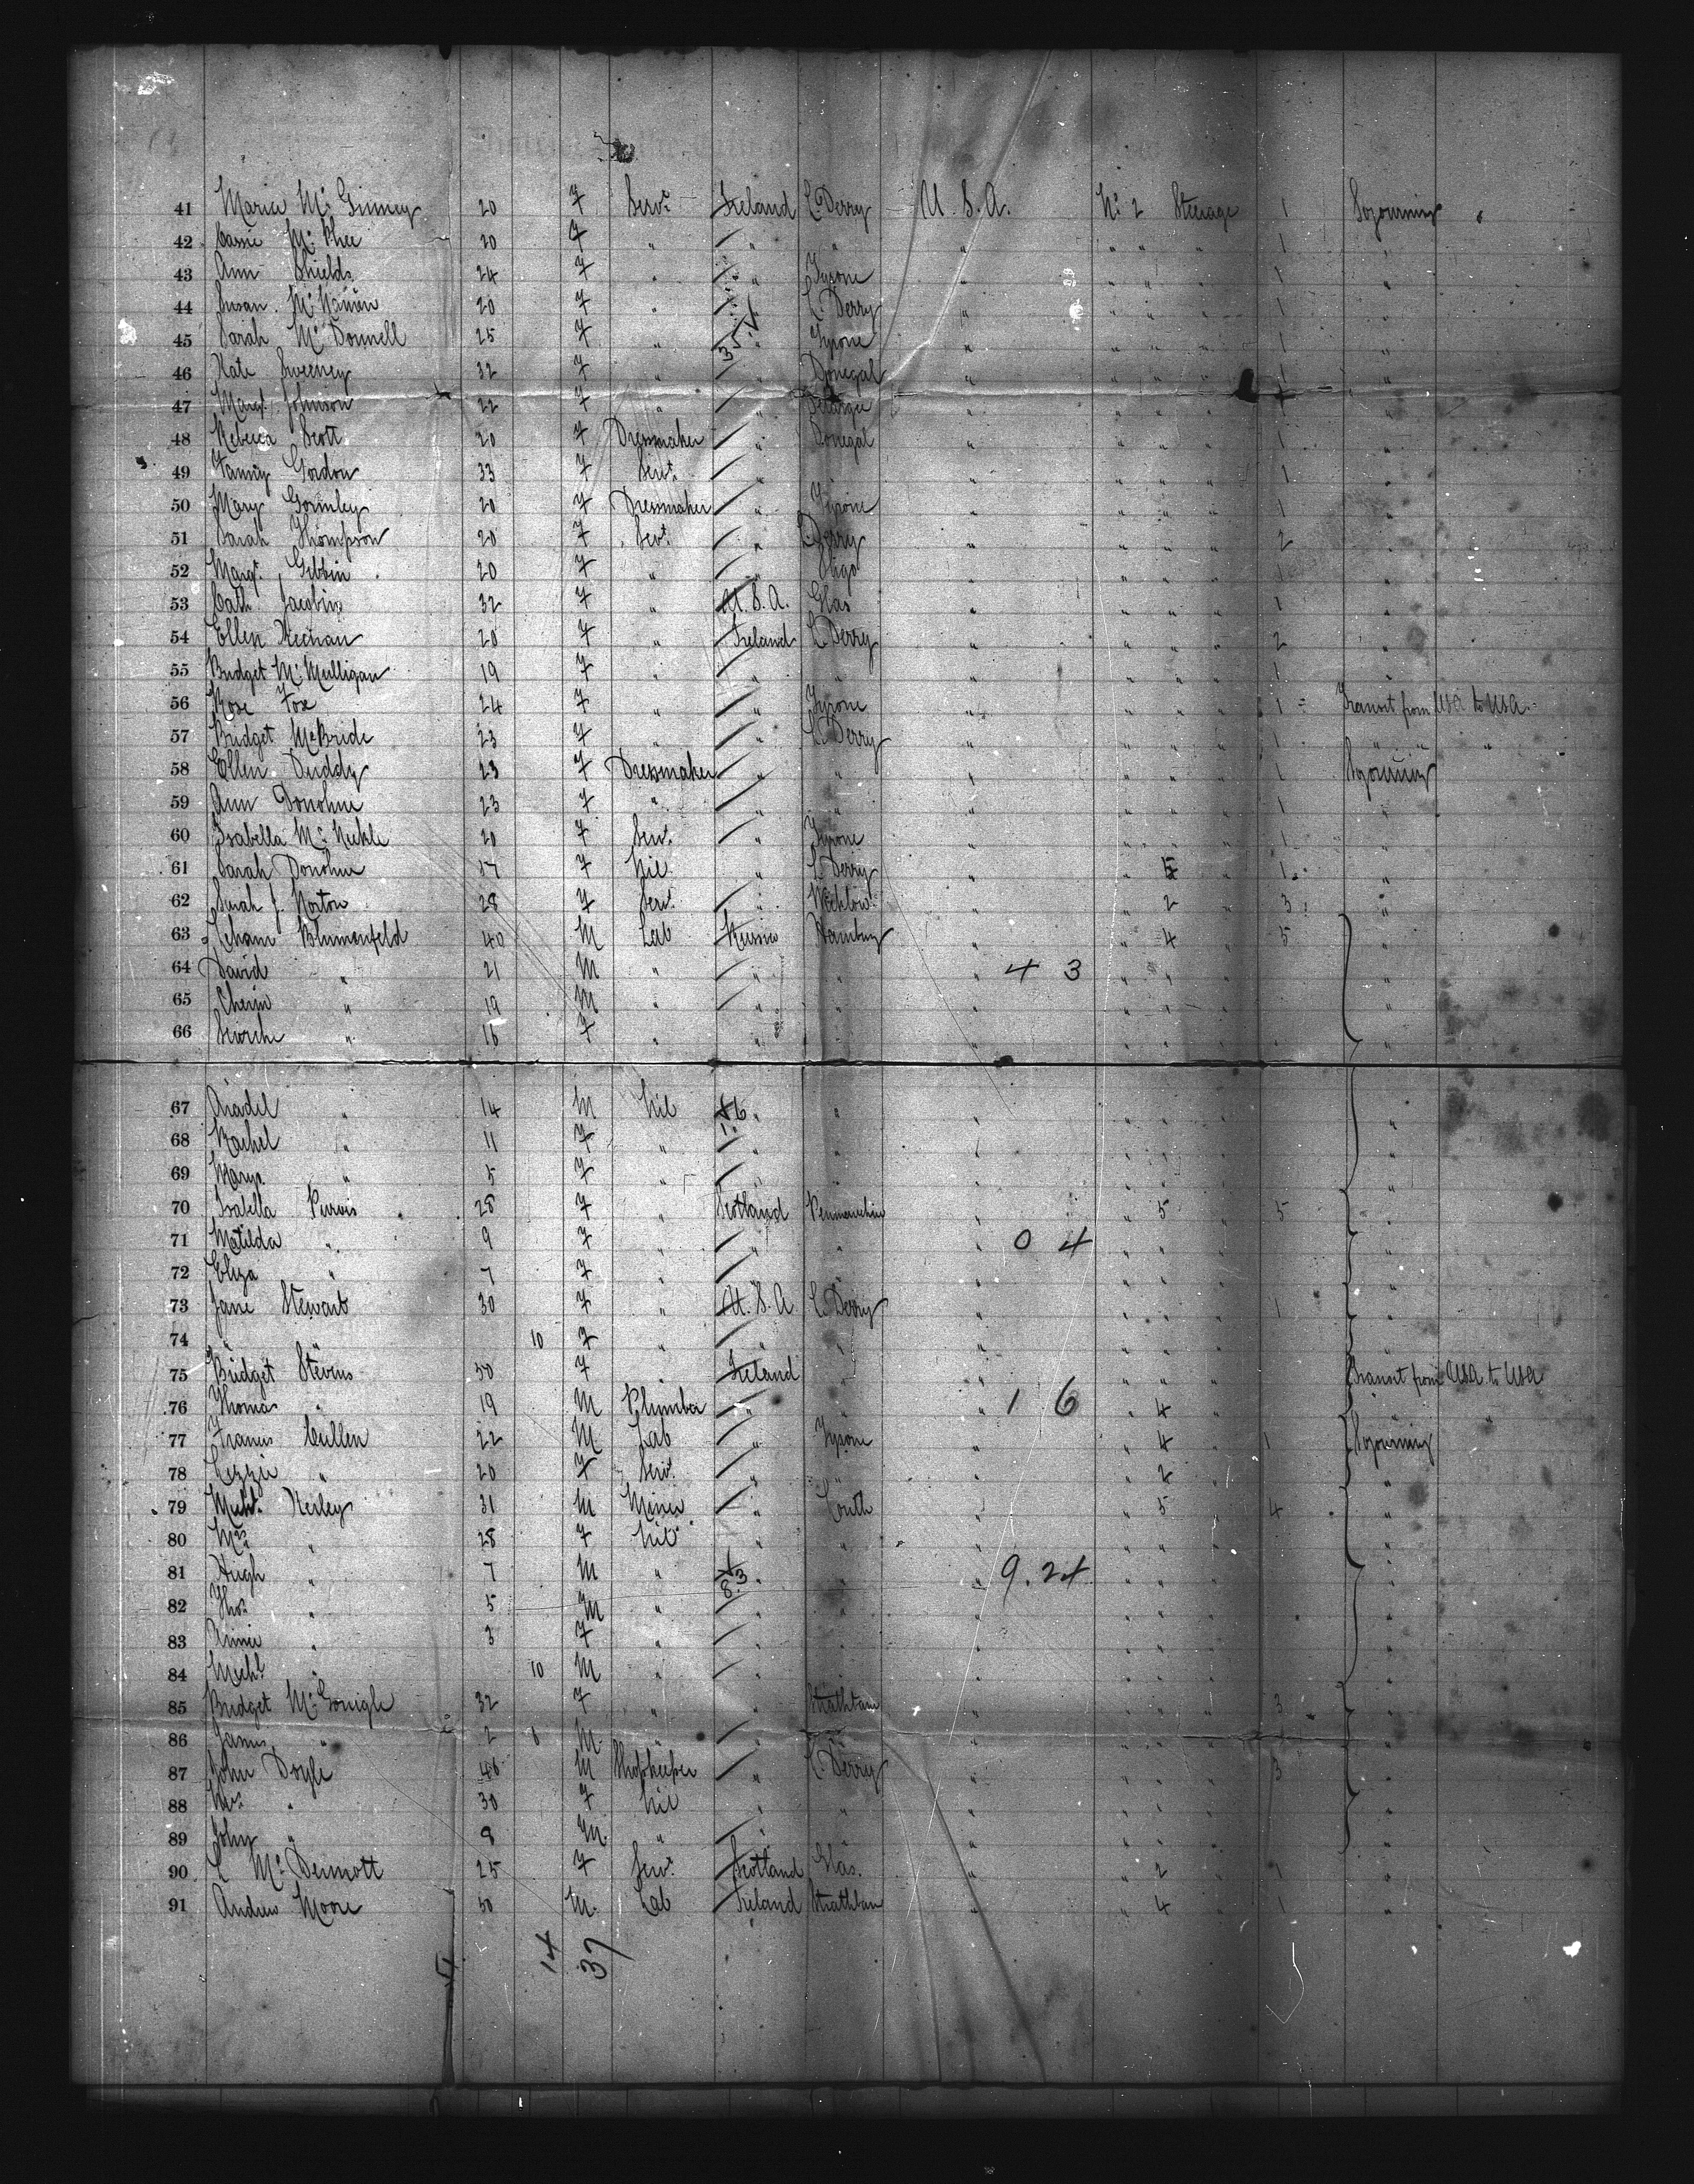 41 Maria McGinney 20 F Servt Ireland L Derry U.S.A. No 2 Steerage 1 Sojourning
42 Cassie McPhee 20 F " " " " " " " 1 "
43 Ann Shields 24 F " " Tyrone " " " " 1 "
44 Susan 20 F " " L. Derry " " " " 1 "
45 Sarah McDonnell 25 F " " Tyrone " " " " 1 "
46 Kate Sweeney 32 F " " Donegal " " " " 1 "
47 Margt. Johnson 22 F " " " " " " "
48 Rebecca Scott 20 F Dressmaker " Donegal " " " " 1 "
49 Fanny Gordon 33 F Servt. " " " " " " 1 "
50 Mary Gormley 20 F Dressmaker " Tyrone " " " " 1 "
51 Sarah Thompson 20 F Servt. " L Derry " " " " 2 "
52 Margt. Gibbin 20 F " " Sligo " " " " "
53 Cath Jacobin 32 F " U.S.A. Glas " " " " 1 "
54 Ellen 20 F " Ireland L Derry " " " " 2 "
55 Bridget McMulligan 19 F " " " " " " " 1 "
56 Rose Fox 24 F " " Tyrone " " " " 1 Transit from USA to USA
57 Bridget McBride 23 F " " L. Derry " " " " 1 " " "
58 Ellen Duddy 23 F Dressmaker " " " " " " 1 Sojourning
59 Ann Donohue 23 F " " " " " " " 1 "
60 Isabella 20 F Servt. " Tyrone " " " " 1 "
61 Sarah Donohue F Nil " L Derry " " 1 "
62 Sarah J. Norton 28 F Servt. " Wicklow " " 2 " 3 "
63 Blumenfeld 40 M Lab Russia Hamburg " " 4 " 5 "
64 David " 21 M " " " 4 3 " " " "
65 " 19 M " " " " " " " "
66 " 16 F " " " " " " " "
67 " 14 M Nil " " " " " " "
68 Rachel " 11 F " " " " " " " "
69 Mary " 5 F " " " " " " " "
70 Isabella Purvis 28 F " Scotland " " 5 " 5 "
71 Matilda " 9 F " " " 0 4 " " " "
72 Eliza " 7 F " " " " " " " "
73 Jane Stewart 30 F " U.S.A L Derry " " " " 1 "
74 " " 10 F " " " " " " " "
75 Bridget Stevens 30 F " Ireland " " " " " Transit from USA to USA
76 Thomas " 19 M Plumber " " " 1 6 " 4 " " "
77 Francis Cullen 22 M Lab " Tyrone " " 4 " 1 Sojourning
78 Lizzie " 20 F Servt. " " " " 2 " "
79 Michl. Kerley 31 M Miner " Louth " " 5 " 4 "
80 Mrs " 28 F Nil " " " " " " "
81 Hugh " 7 M " " " 9.24 " " " "
82 Thos. " 5 M " " " " " " " "
83 Annie " 3 F " " " " " " " "
84 Michl " 10 M " " " " " " " "
85 Bridget McGonigle 32 F " " Strathbane " " " " 3 "
86 James " 2 8 M " " " " " " " "
87 John Doyle 46 M Shopkeeper " L. Derry " " " " 3 "
88 Mrs. " 30 F Nil " " " " " " "
89 John " 9 M. " " " " " " " "
90 C McDermott 25 F Servt. Scotland Glas. " " 2 " 1 "
91 Andrew Moore 50 M. Lab Ireland Strathbane " " 4 " 1 "
14 37